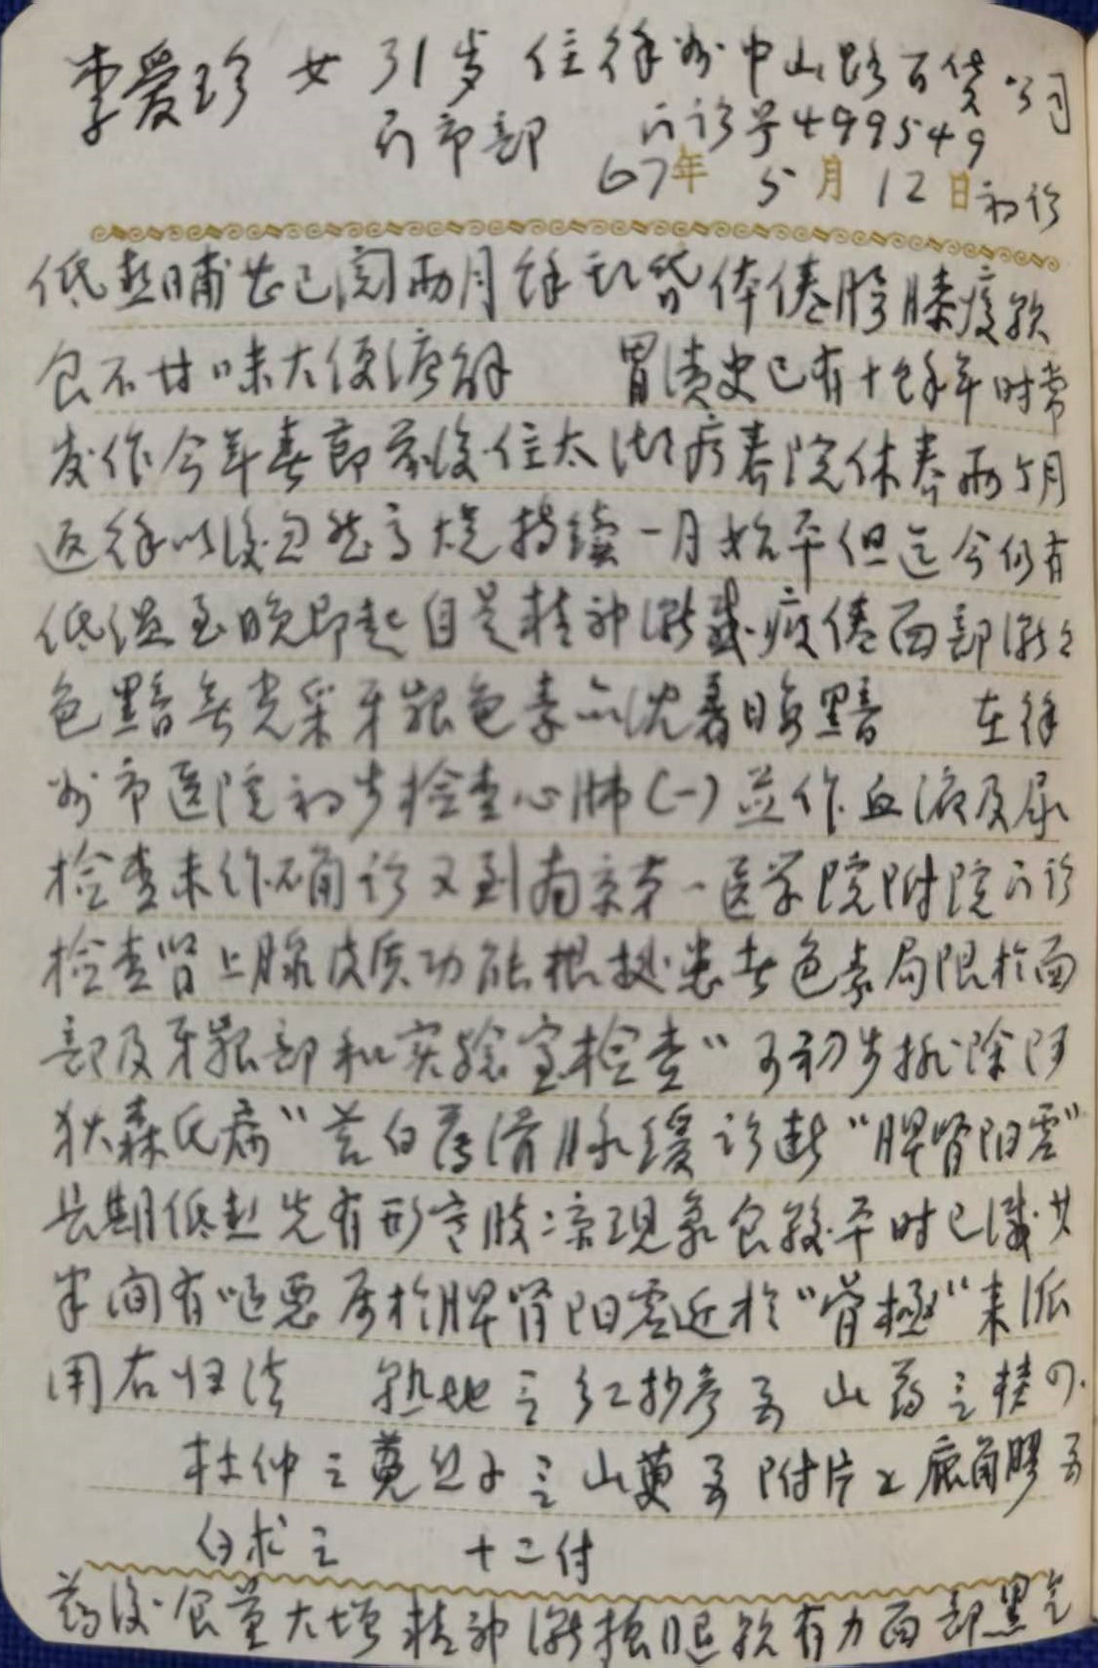 李爱珍 女 31岁 住徐州中山路百货公司
门市部 门诊号499549
67年 5月12日初诊
低热晡甚已阅两月余 体倦胯膝痠软
食不甘味大便溏解 胃溃史已有十余年时常
发作今年春节前後住太湖疗养院休养两个月
返徐以後忽然高烧持续一月始平但迄今仍有
低温至晚即起自是精神渐感疲倦面部渐渐
色黯无光采牙龈色素亦沈着晦黯 在徐
州市医院初步检查心肺(一)並作血液及尿
检查未作确诊又到南京第一医学院附院门诊
检查肾上腺皮质功能根据患者色素局限於面
部及牙龈部和实验室检查"可初步排除阿
狄森氏病"苔白厚滑脉缓诊断"脾肾阳虚"
长期低热先有形寒肢凉现象食较平时已减其
半间有呕恶属於脾肾阳虚近於"骨極"来派
用右归法 熟地 红抄参 山药 桂
杜仲 菟丝子 山萸 附片 鹿角膠
白术 十二付
药後食量大增精神渐振腿软有力面部黑气